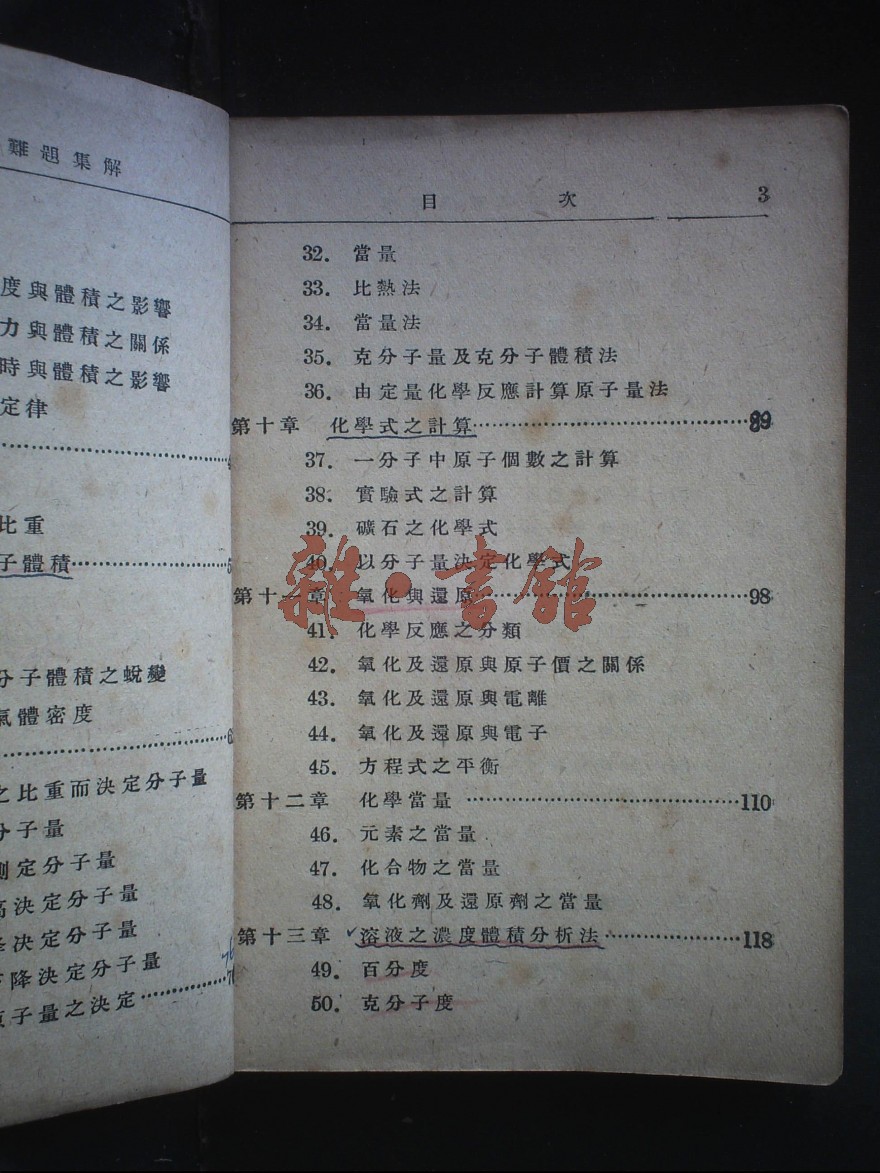 難題集解
度與體積之影響
力與體積之關係
時與體積之影響
定律
比重
子體積
分子體積之蛻變
氣體密度
之比重而決定分子量
分子量
測定分子量
高決定分子量
降決定分子量
下降決定分子量
原子量之決定
目 次 3
32. 當量
33. 比熱法
34. 當量法
35. 克分子量及克分子體積法
36. 由定量化學反應計算原子量法
第十章 化學式之計算 89
37. 一分子中原子個數之計算
38. 實驗式之計算
39. 礦石之化學式
40. 以分子量決定化學式
第十一章 氧化與還原 98
41. 化學反應之分類
42. 氧化及還原與原子價之關係
43. 氧化及還原與電離
44. 氧化及還原與電子
45. 方程式之平衡
第十二章 化學當量 110
46. 元素之當量
47. 化合物之當量
48. 氧化劑及還原劑之當量
第十三章 溶液之濃度體積分析法 118
49. 百分度
50. 克分子度
雜·書館